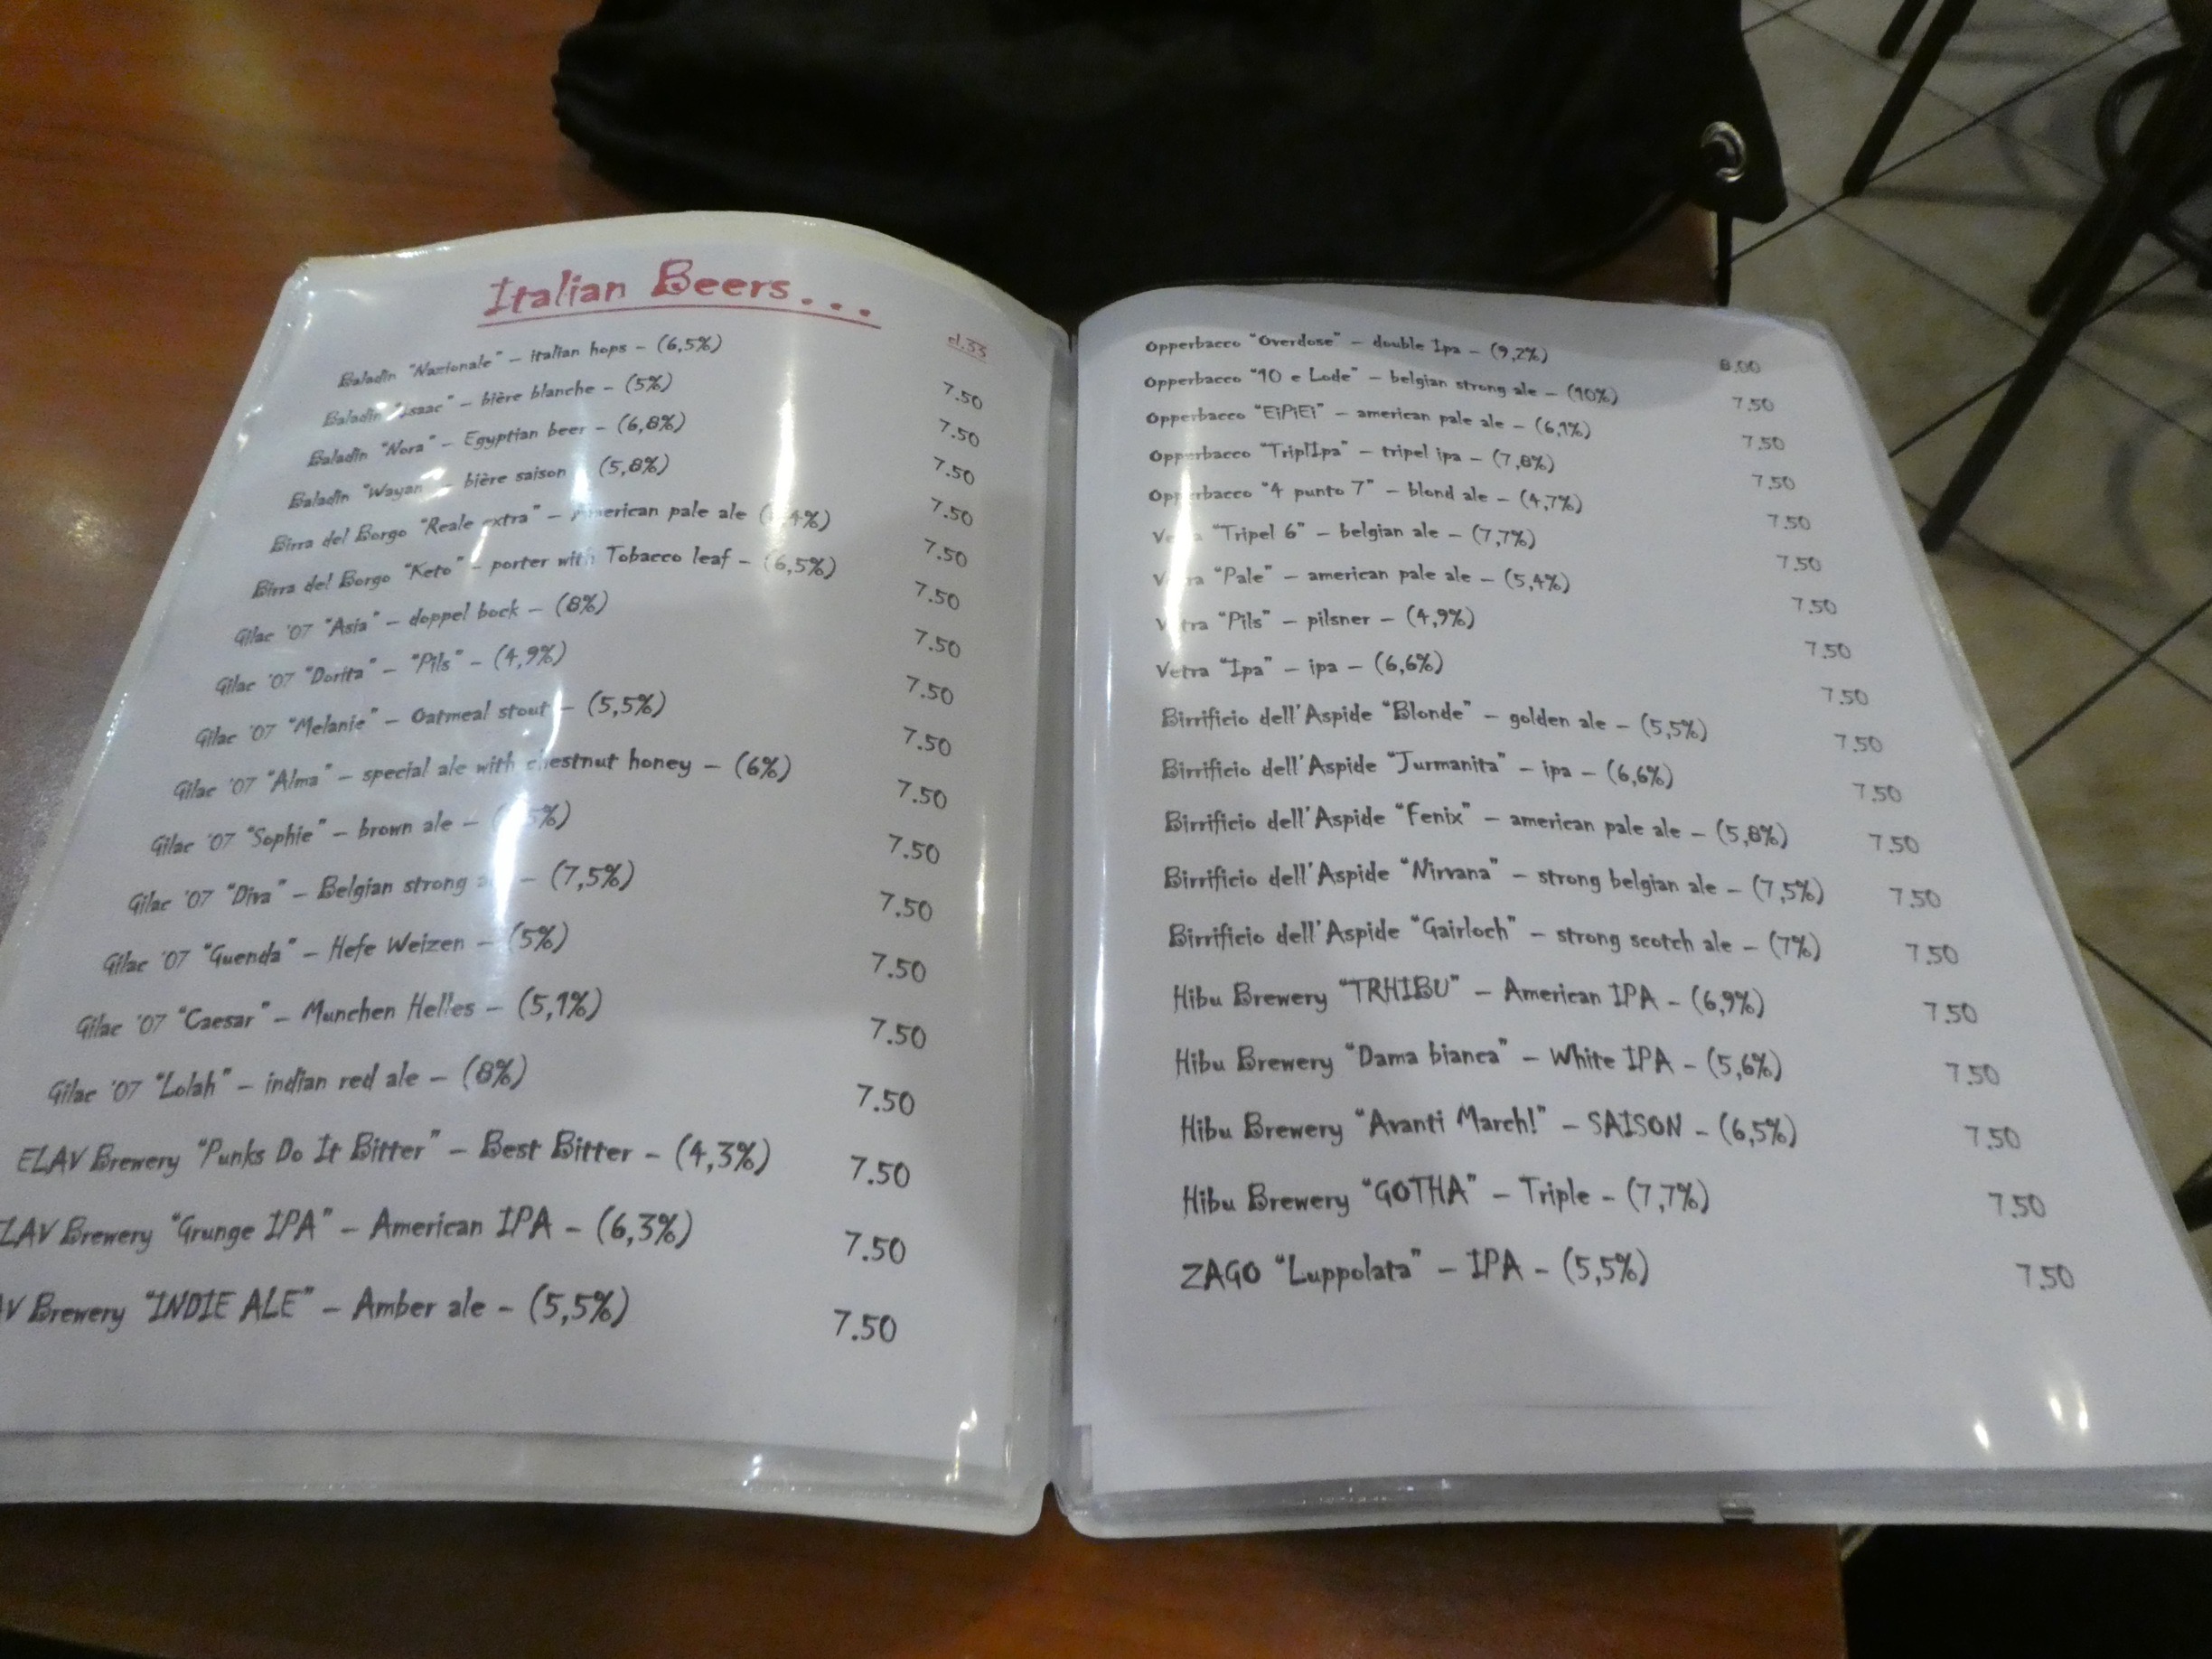 Italian Beers...
cl.33
Baladin "Nazionale" – italian hops – (6,5%) 7.50
Baladin "Isaac" – bière blanche – (5%) 7.50
Baladin "Nora" – Egyptian beer – (6,8%) 7.50
Baladin "Wayan – bière saison (5,8%) 7.50
Birra del Borgo "Reale extra" – American pale ale 7.50
Birra del Borgo "Keto" – porter with Tobacco leaf – (6,5%) 7.50
Gilac '07 "Asia" – doppel bock – (8%) 7.50
Gilac '07 "Dorita" – "Pils" – (4,9%) 7.50
Gilac '07 "Melanie" – Oatmeal stout – (5,5%) 7.50
Gilac '07 "Alma" – special ale with chestnut honey – (6%) 7.50
Gilac '07 "Sophie" – brown ale – 7.50
Gilac '07 "Diva" – Belgian strong – (7,5%) 7.50
Gilac '07 "Guenda" – Hefe Weizen – (5%) 7.50
Gilac '07 "Caesar" – Munchen Helles – (5,1%) 7.50
Gilac '07 "Lolah" – indian red ale – (8%) 7.50
ELAV Brewery "Punks Do It Bitter" – Best Bitter – (4,3%) 7.50
LAV Brewery "Grunge IPA" – American IPA – (6,3%) 7.50
AV Brewery "INDIE ALE" – Amber ale – (5,5%) 7.50
Opperbacco "Overdose" – double Ipa – (9,2%) 8.00
Opperbacco "10 e Lode" – belgian strong ale – (10%) 7.50
Opperbacco "EiPiEi" – american pale ale – (6,1%) 7.50
Opperbacco "TriplIpa" – tripel ipa – (7,8%) 7.50
Opperbacco "4 punto 7" – blond ale – (4,7%) 7.50
Vetra "Tripel 6" – belgian ale – (7,7%) 7.50
Vetra "Pale" – american pale ale – (5,4%) 7.50
Vetra "Pils" – pilsner – (4,9%) 7.50
Vetra "Ipa" – ipa – (6,6%) 7.50
Birrificio dell'Aspide "Blonde" – golden ale – (5,5%) 7.50
Birrificio dell'Aspide "Jurmanita" – ipa – (6,6%) 7.50
Birrificio dell'Aspide "Fenix" – american pale ale – (5,8%) 7.50
Birrificio dell'Aspide "Nirvana" – strong belgian ale – (7,5%) 7.50
Birrificio dell'Aspide "Gairloch" – strong scotch ale – (7%) 7.50
Hibu Brewery "TRHIBU" – American IPA – (6,9%) 7.50
Hibu Brewery "Dama bianca" – White IPA – (5,6%) 7.50
Hibu Brewery "Avanti March!" – SAISON – (6,5%) 7.50
Hibu Brewery "GOTHA" – Triple – (7,7%) 7.50
ZAGO "Luppolata" – IPA – (5,5%) 7.50